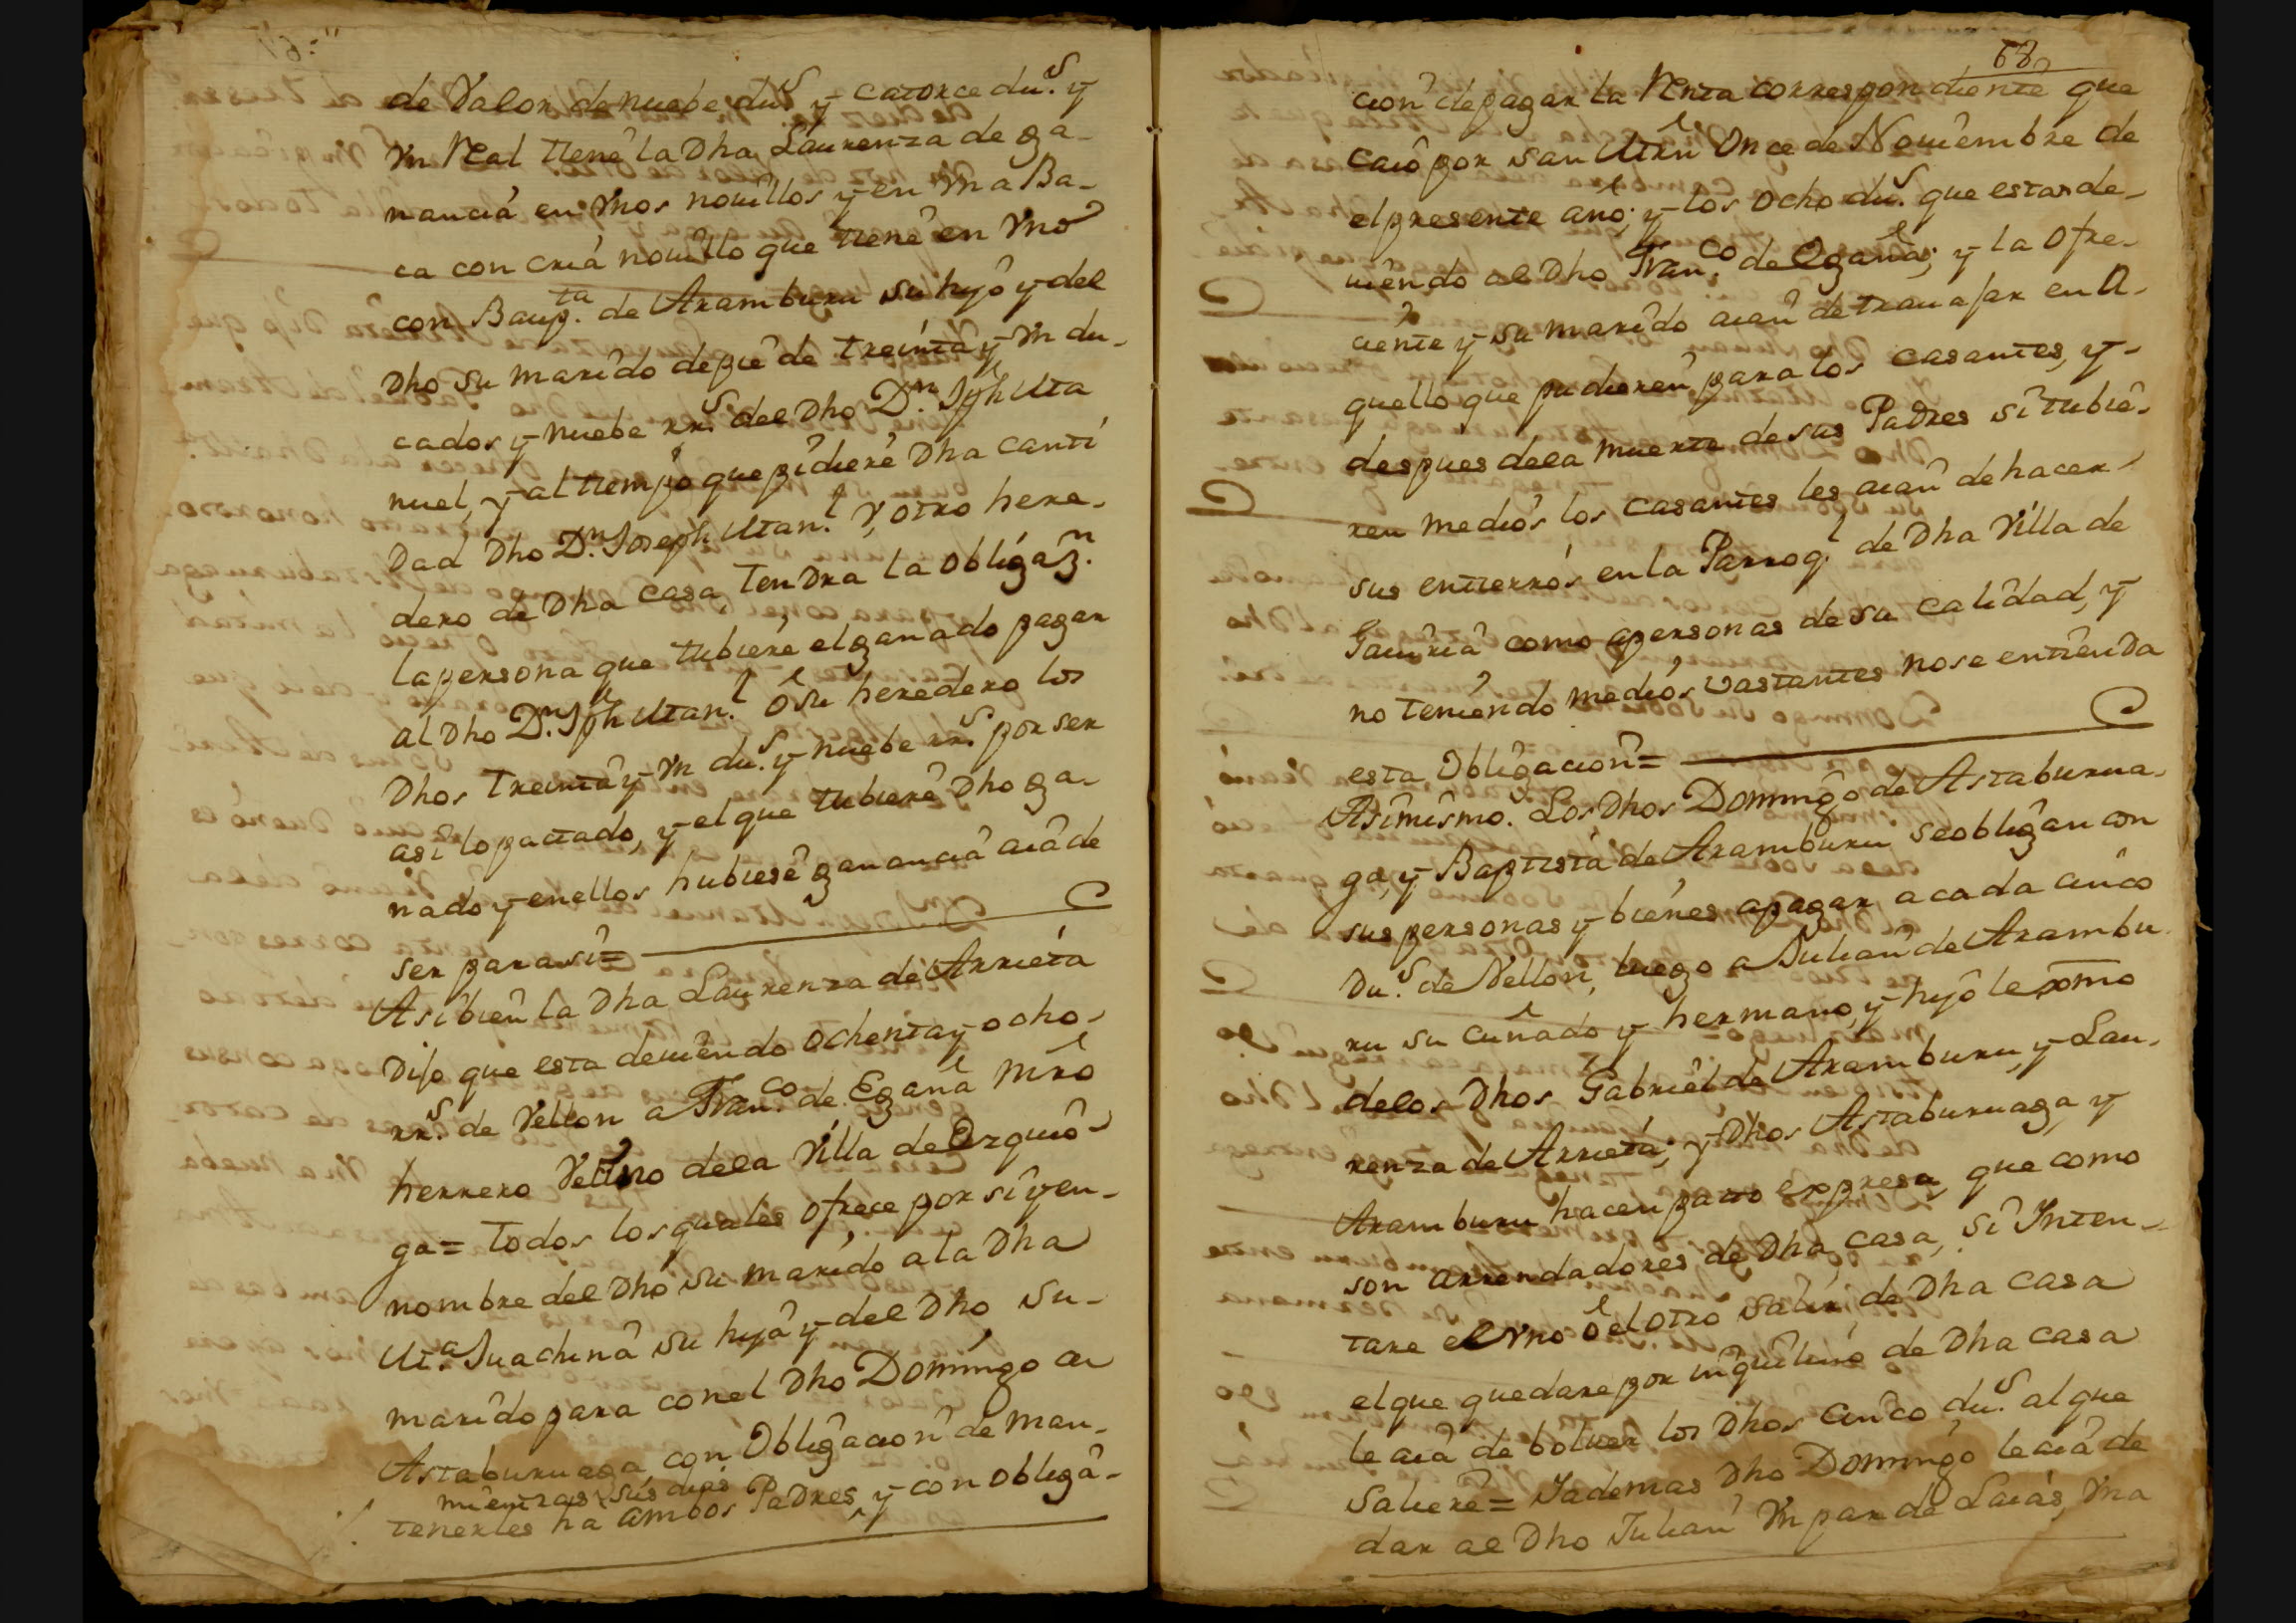 de Valor de nuebe du.s y catorce du.s y
Vn Real tiene la Dha Laurenza de ga-
nancia en Vnos nouillos y en Vna Ba-
ca con cria nouillo que tiene en Vno
con Baup.ta de Aramburu su hijo y del
Dho su marido de pie de treinta y Vn du-
cados y nuebe rr.s del Dho D.n Jph Ma
nuel, y al tiempo que pidiere Dha canti
Dad Dho D.n Joseph Man.l Y, otro here-
dero de Dha Casa, tendra la obligaz.n
la persona que tubiere el ganado pagar
al Dho D.n Jph Man.l ô su heredero los
Dhos treinta y Vn du.s y nuebe rr.s por ser
asi lo pactado, y el que tubiere Dho ga-
nado y en ellos hubiese ganancia aia de
ser para si=
Asibien la Dha Laurenza de Arrieta
Dijo que esta deuiendo ochenta y ocho
rr.s de Vellon a Fran.co de Egaña Mro
herrero Vecino de la Villa de Ezquio
ga= todos los quales ofrece por si y en-
nombre del Dho su marido a la Dha
M.a Juachina su hija y del Dho su-
marido para con el Dho Domingo de
Astaburuaga con Obligacion de man-
mientras sus dias
tenerles ha ambos Padres, y con obliga-
68
cion de pagar la Renta correspondiente que
caio por san Mrn Once de Nouiembre de
el presente año; y los ocho du.s que estan de-
uiendo al Dho Fran.co de Egaña; y la Ofre-
ciente y su marido aian de trauajar en a-
quello que pudieren para los casantes, y-
despues de la muerte de sus Padres si tubie-
ren medios los casantes les aian de hacer
sus entierros en la Parroq.l de Dha Villa de
Gauiria como a personas de su calidad, y
no teniendo medios vastantes no se entienda
esta Obligacion=
Asimismo. Los Dhos Domingo de Astaburua-
ga, y Baptista de Aramburu se obligan con
sus personas y bienes a pagar a cada cinco
Du.s de Vellon, luego a Julian de Arambu
ru su cuñado y hermano, y hijo lexmo
de los Dhos Gabriel de Aramburu, y Lau-
renza de Arrieta; y Dhos Astaburuaga, y
Aramburu hacen pacto expreso, que como
son arrendadores de Dha casa, si Inten-
tare el Vno ô el otro salir, de Dha Casa
el que quedare por inquilino de Dha casa
le aia de boluer los Dhos cinco du.s al que
saliere= Yademas Dho Domingo le aia de
dar al Dho Julian Vn par de Laias, Vna